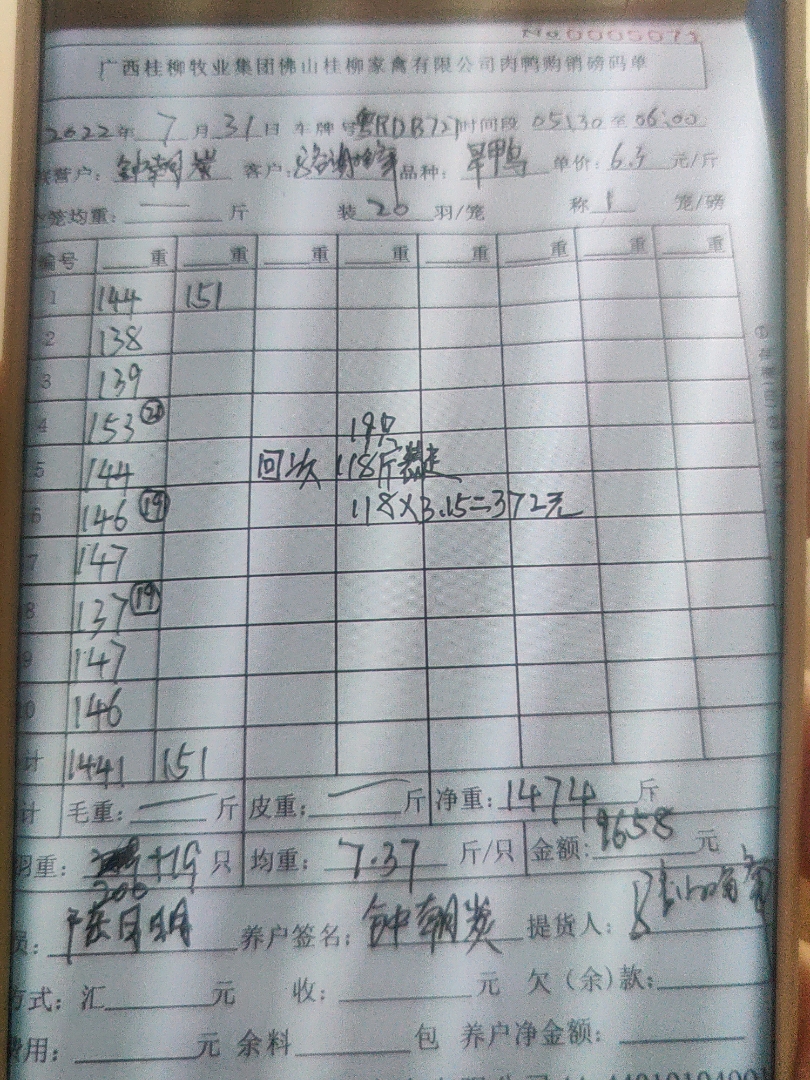 No 0005071
广西桂柳牧业集团佛山桂柳家禽有限公司肉鸭购销磅码单
2022年 7 月 31 日 车牌号粤RDB721时间段 05:30 至 06:00
营户: 钟朝炭 客户: 品种: 旱鸭 单价: 6.3 元/斤
笼均重: — 斤 装 20 羽/笼 称 1 笼/磅
编号 重 重 重 重 重 重 重 重
1 144 151
2 138
3 139
4 153 ㉑ 19只
5 144 回次 118斤
6 146 ⑲ 118×3.15=372元
7 147
8 137 ⑲
9 147
0 146
计 1441 151
计 毛重: — 斤 皮重: — 斤 净重: 1474 斤
羽重: 200 +19 只 均重: 7.37 斤/只 金额: 9658 元
员: 陈日明 养户签名: 钟朝炭 提货人:
方式: 汇 元 收: 元 欠(余)款:
费用: 元 余料 包 养户净金额: